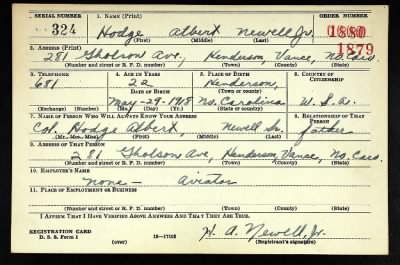 SERIAL NUMBER
1. NAME (Print)
ORDER NUMBER
324
Hodge Albert Newell Jr.
(First) (Middle) (Last)
1879
2. ADDRESS (Print)
281 Gholson Ave, Henderson Vance, No. Caro.
(Number and street or R. F. D. number) (Town) (County) (State)
3. TELEPHONE
4. AGE IN YEARS
5. PLACE OF BIRTH
6. COUNTRY OF CITIZENSHIP
681
22
Henderson,
DATE OF BIRTH
(Town or county)
May-29-1918
No. Carolina
U. S. A.
(Exchange) (Number)
(Mo.) (Day) (Yr.)
(State or country)
7. NAME OF PERSON WHO WILL ALWAYS KNOW YOUR ADDRESS
8. RELATIONSHIP OF THAT PERSON
Col. Hodge Albert, Newell Sr.
father
(Mr., Mrs., Miss) (First) (Middle) (Last)
9. ADDRESS OF THAT PERSON
281 Gholson Ave, Henderson, Vance, No. Caro.
(Number and street or R. F. D. number) (Town) (County) (State)
10. EMPLOYER'S NAME
none - Aviator
11. PLACE OF EMPLOYMENT OR BUSINESS
(Number and street or R. F. D. number) (Town) (County) (State)
I AFFIRM THAT I HAVE VERIFIED ABOVE ANSWERS AND THAT THEY ARE TRUE.
REGISTRATION CARD
D. S. S. Form 1
(over)
16-17105
H. A. Newell, Jr.
(Registrant's signature)